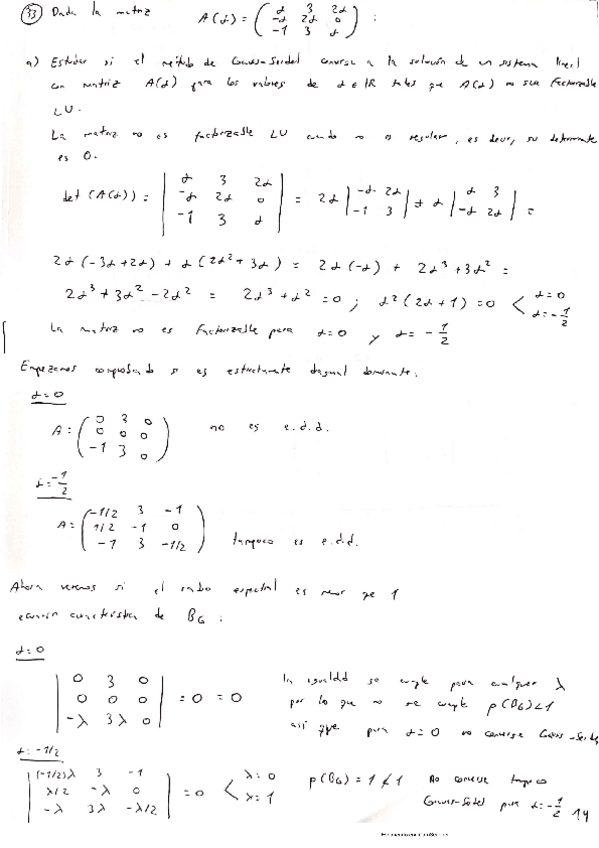 33 Dada la matriz A(α) = ( α 3 2α ; -α 2α 0 ; -1 3 α ) :
a) Estudiar si el método de Gauss-Seidel converge a la solución de un sistema lineal
con matriz A(α) para los valores de α ∈ ℝ tales que A(α) no sea factorizable
LU.
La matriz no es factorizable LU cuando no es regular, es decir, su determinante
es 0.
det (A(α)) = | α 3 2α ; -α 2α 0 ; -1 3 α | = 2α | -α 2α ; -1 3 | + α | α 3 ; -α 2α | =
2α (-3α + 2α) + α (2α² + 3α) = 2α (-α) + 2α³ + 3α² =
2α³ + 3α² - 2α² = 2α³ + α² = 0 ; α² (2α + 1) = 0 < α = 0 ; α = -1/2
La matriz no es factorizable para α = 0 y α = -1/2
Empezamos comprobando si es estrictamente diagonal dominante.
α = 0
A = ( 0 3 0 ; 0 0 0 ; -1 3 0 ) no es e.d.d.
α = -1/2
A = ( -1/2 3 -1 ; 1/2 -1 0 ; -1 3 -1/2 ) tampoco es e.d.d.
Ahora veremos si el radio espectral es menor que 1
ecuación característica de B_G :
α = 0
| 0 3 0 ; 0 0 0 ; -λ 3λ 0 | = 0 = 0
la igualdad se cumple para cualquier λ
por lo que no se cumple ρ(B_G) < 1
así que para α = 0 no converge Gauss-Seidel
α = -1/2
| (-1/2)λ 3 -1 ; λ/2 -λ 0 ; -λ 3λ -λ/2 | = 0 < λ = 0 ; λ = 1
ρ(B_G) = 1 ≮ 1 No converge tampoco
Gauss-Seidel para α = -1/2
14